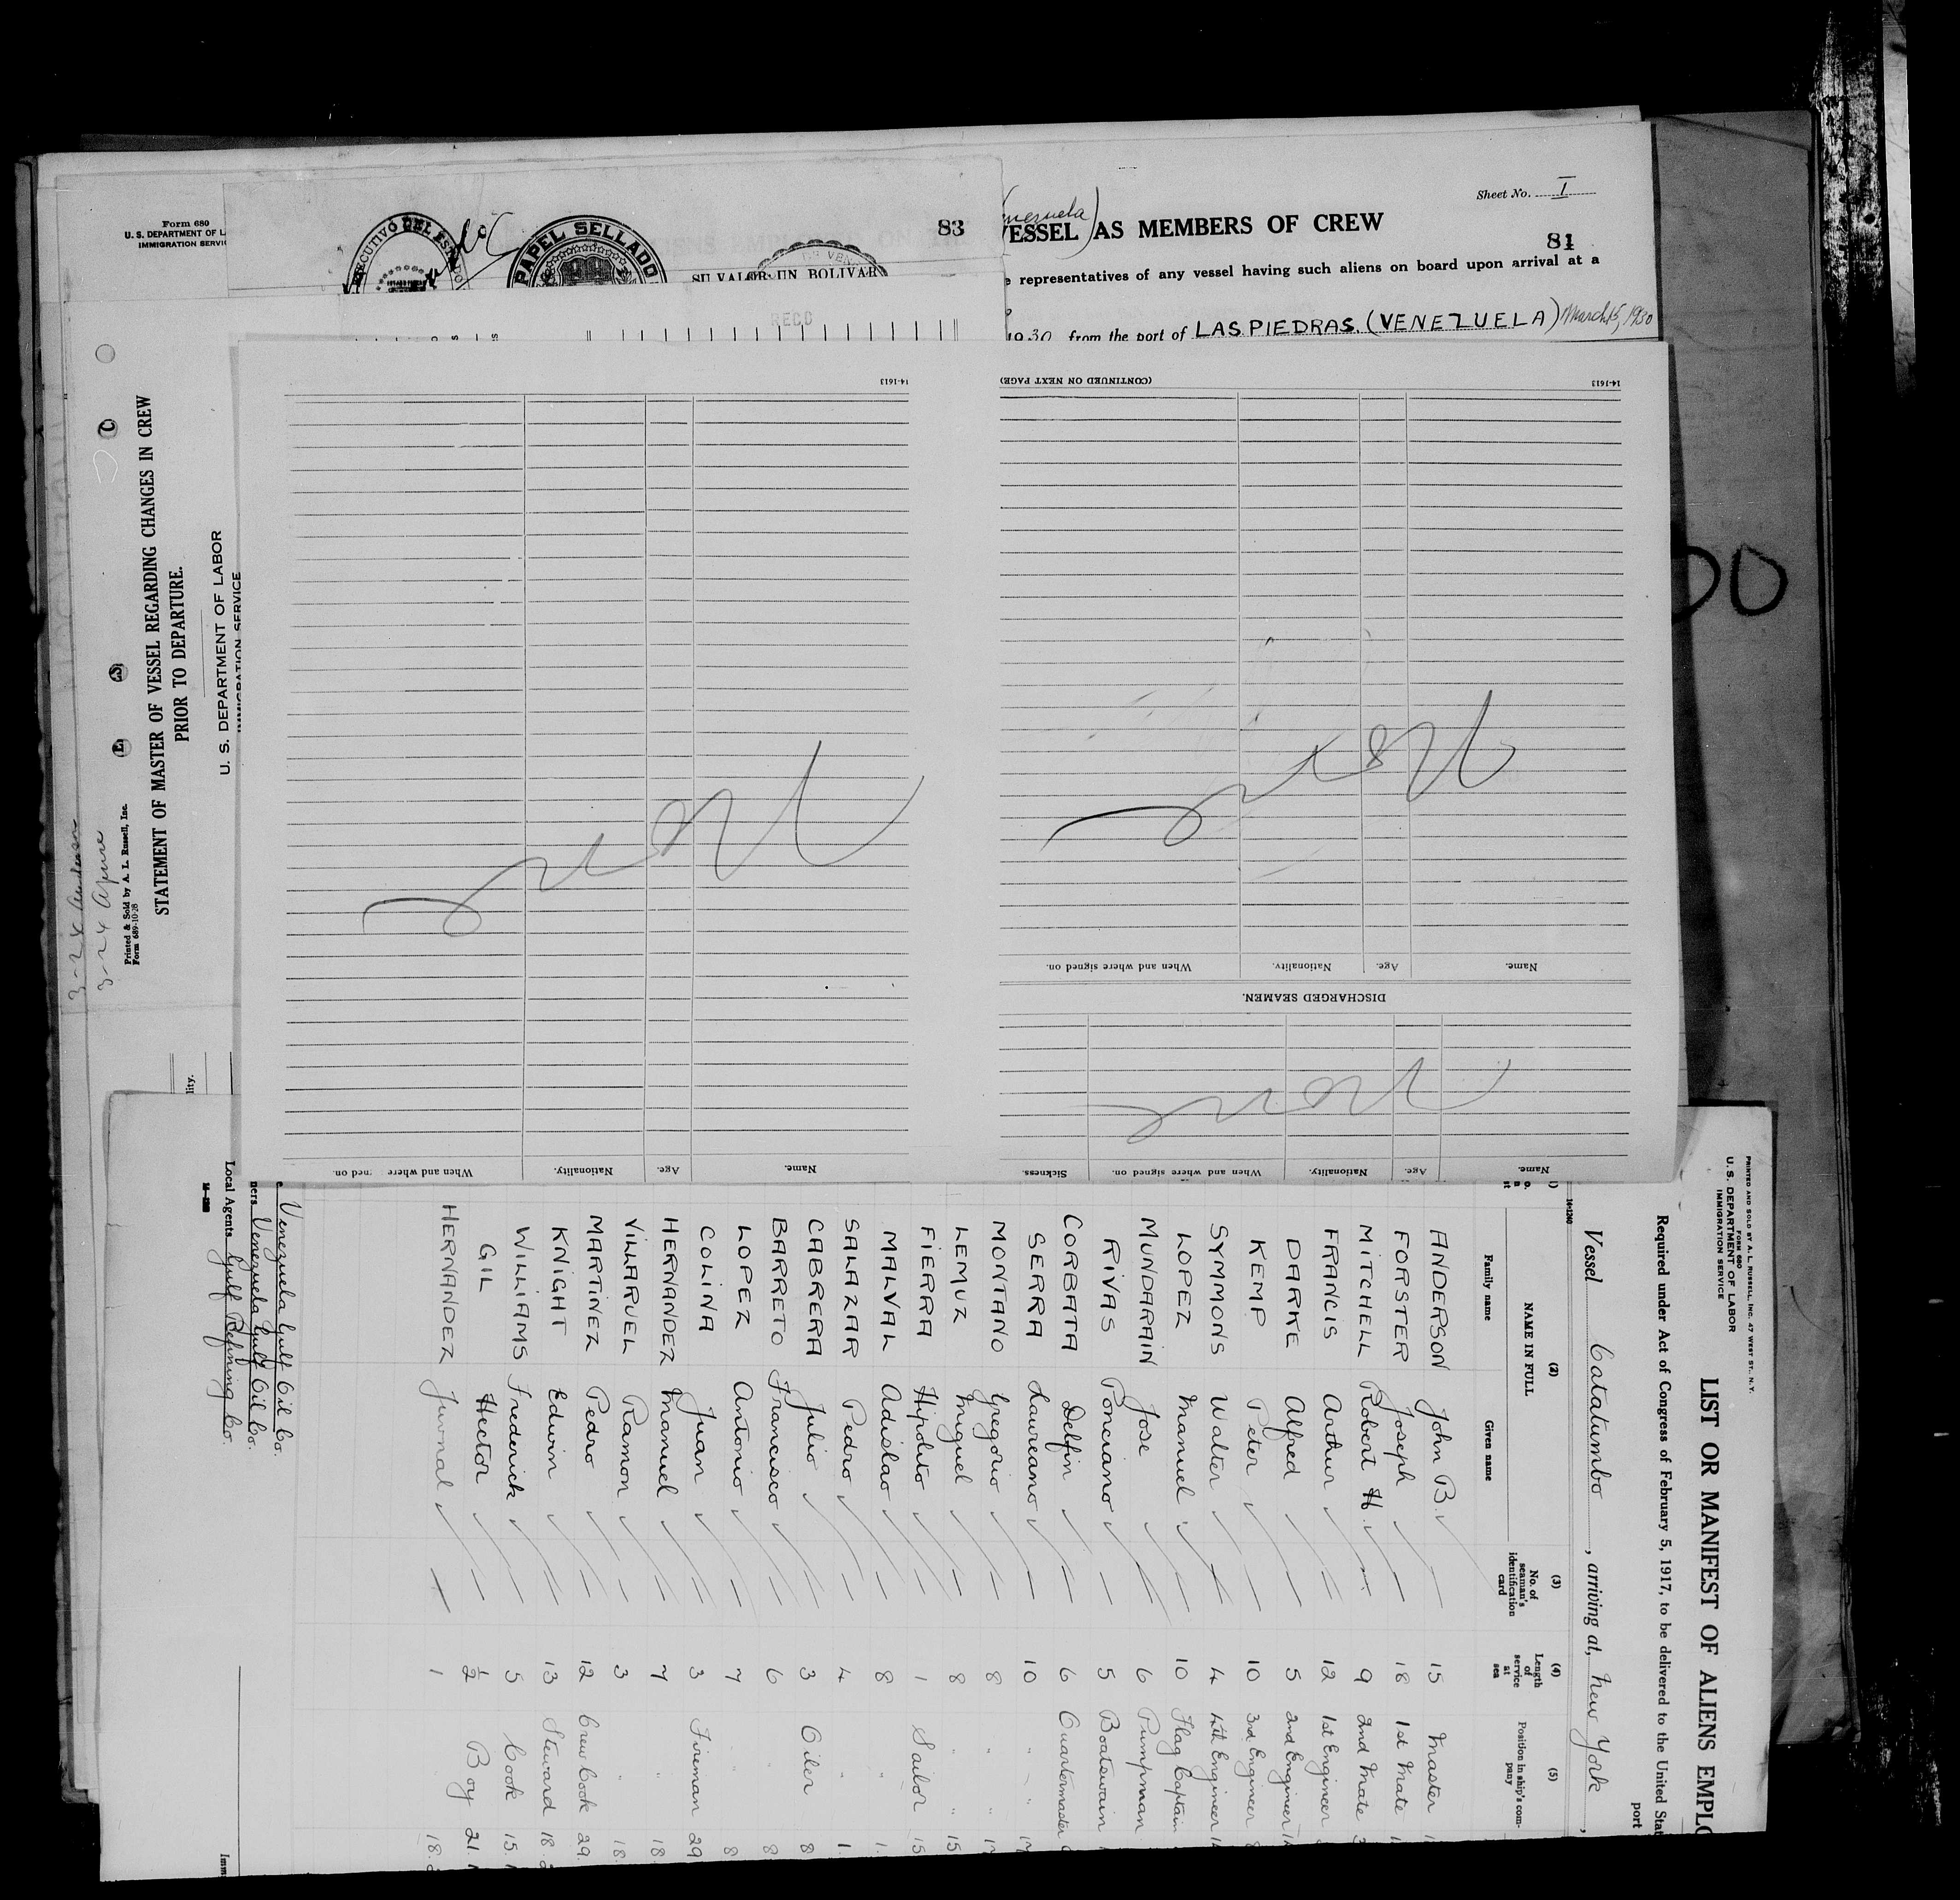 Form 680
U. S. DEPARTMENT OF L
IMMIGRATION SERVI
PAPEL SELLADO
83
SU VALOR UN BOLIVAR
RECD
Sheet No. I
nezuela)
VESSEL AS MEMBERS OF CREW
81
e representatives of any vessel having such aliens on board upon arrival at a
1930 from the port of LAS PIEDRAS. (VENEZUELA) March 15, 1930
3-24 Anderson
3-24 Apure
Printed & Sold by A. L. Russell, Inc.
Form 689-10-28
STATEMENT OF MASTER OF VESSEL REGARDING CHANGES IN CREW
PRIOR TO DEPARTURE.
U. S. DEPARTMENT OF LABOR
IMMIGRATION SERVICE
lity.
14-1613
(CONTINUED ON NEXT PAGE)
14-1613
Name. Age. Nationality. When and where signed on.
DISCHARGED SEAMEN.
Name. Age. Nationality. When and where signed on. Sickness.
Name. Age. Nationality. When and where ned on.
PRINTED AND SOLD BY A. L. RUSSELL, INC. 47 WEST ST. N. Y.
FORM 680
U. S. DEPARTMENT OF LABOR
IMMIGRATION SERVICE
LIST OR MANIFEST OF ALIENS EMPLO
Required under Act of Congress of February 5, 1917, to be delivered to the United Stat
port
Vessel Catatumbo, arriving at, New York,
14-1240
(2) (3) (4) (5)
NAME IN FULL No. of seaman's identification card Length of service at sea Position in ship's company
Family name Given name
ANDERSON John B. 15 Master
FORSTER Joseph 18 1st Mate
MITCHELL Robert H. 9 2nd Mate
FRANCIS Arthur 12 1st Engineer
DARKE Alfred 5 2nd Engineer
KEMP Peter 10 3rd Engineer
SYMMONS Walter 4 4th Engineer
LOPEZ Manuel 10 Flag Captain
MUNDARAIN Jose 6 Pumpman
RIVAS Ponciano 5 Boatswain
CORBATA Delfin 6 Quartermaster
SERRA Laureano 10 "
MONTANO Gregorio 8 "
LEMUZ Miguel 8 "
FIERRA Hipolito 1 Sailor 15
MALVAL Adislao 8 "
SALAZAR Pedro 4 "
CABRERA Julio 3 Oiler 8
BARRETO Francisco 6 " 8
LOPEZ Antonio 7 " 8
COLINA Juan 3 Fireman 29
HERNANDEZ Manuel 7 " 18
VILLARUEL Ramon 3 " 18.
MARTINEZ Pedro 12 Crew Cook 29.
KNIGHT Edwin 13 Steward 18.
WILLIAMS Frederick 5 Cook 15.
GIL Hector ½ Boy 21
HERNANDEZ Juvenal 1 " 18.
e. Venezuela Gulf Oil Co.
ners Venezuela Gulf Oil Co.
Local Agents Gulf Refining Co.
Imm